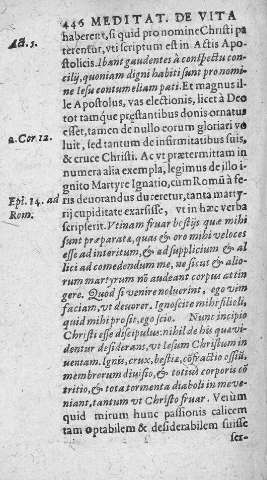 446 MEDITAT. DE VITA
haberent, si quid pro nomine Christi pa
terentur, vti scriptum est in Actis Apo-
Act. 5.
stolicis. Ibant gaudentes à conspectu con-
cilij, quoniam digni habiti sunt pro nomi-
ne Iesu contumeliam pati. Et magnus il-
le Apostolus, vas electionis, licèt à Deo
tot tamque præstantibus donis ornatus
esset, tamen de nullo eorum gloriari vo
2. Cor. 12.
luit, sed tantum de infirmitatibus suis,
& cruce Christi. Ac vt prætermittam in
numera alia exempla, legimus de illo i-
gnitо Martyre Ignatio, cum Romã à fe-
Epi. 14. ad
Rom.
ris deuorandus duceretur, tanta marty-
rij cupiditate exarsisse, vt in hæc verba
scripserit. Vtinam fruar bestijs quæ mihi
sunt præparatæ, quas & oro mihi veloces
esse ad interitum, & ad supplicium & al
lici ad comedendum me, ne sicut & alio-
rum martyrum nõ audeant corpus attin
gere. Quòd si venire noluerint, ego vim
faciam, vt deuorer. Ignoscite mihi filioli,
quid mihi prosit, ego scio. Nunc incipio
Christi esse discipulus: nihil de his quæ vi-
dentur desiderans, vt Iesum Christum in
ueniam. Ignis, crux, bestiæ, cõfractio ossiũ,
membrorum diuisio, & totius corporis cõ
tritio, & tota tormenta diaboli in me ve-
niant, tantum vt Christo fruar. Verùm
quid mirum hunc passionis calicem
tam optabilem & desiderabilem suisse
ser-